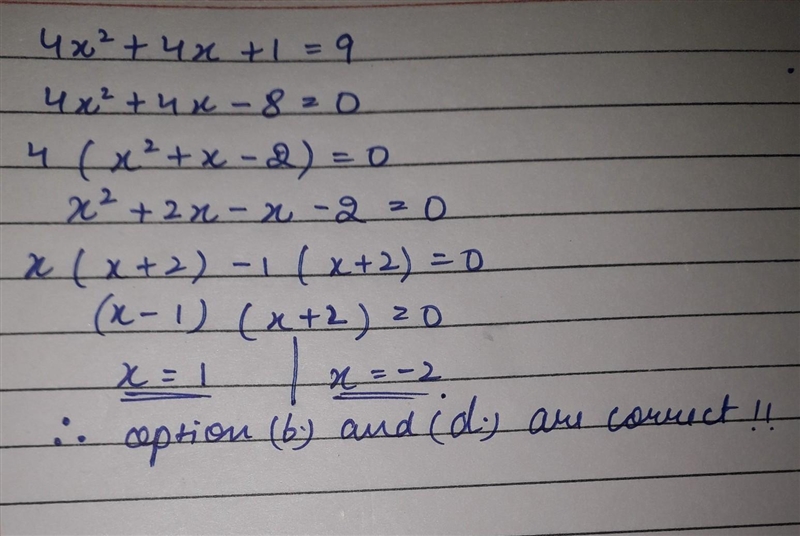 4x² + 4x + 1 = 9
4x² + 4x - 8 = 0
4 (x² + x - 2) = 0
x² + 2x - x - 2 = 0
x (x+2) - 1 (x+2) = 0
(x-1) (x+2) = 0
x = 1 | x = -2
∴ option (b.) and (d.) are correct !!